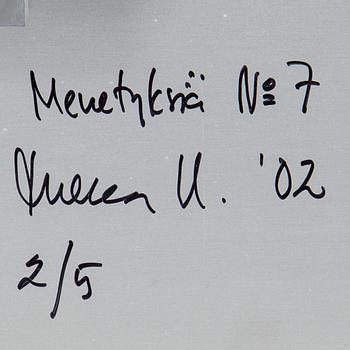 Menetyksiä № 7
U. '02
2/5